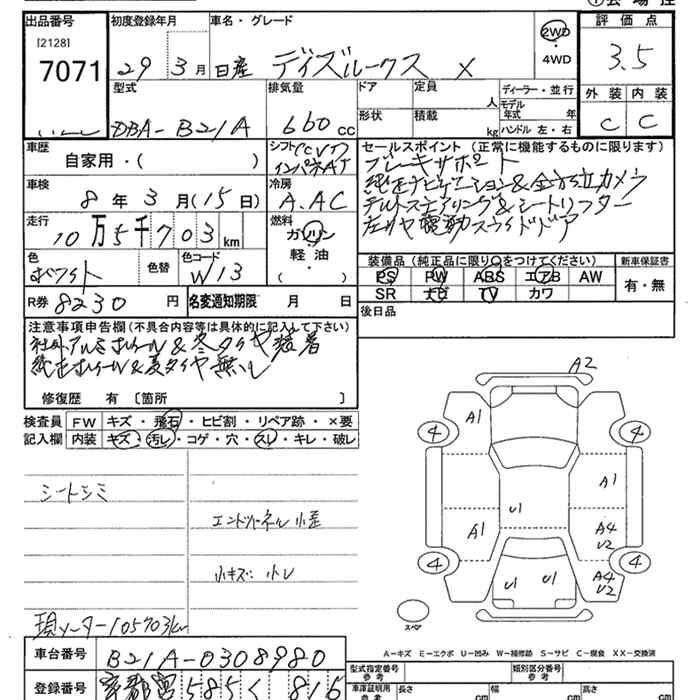 出品番号 初度登録年月 車名・グレード 評価点
[2128]
7071 29 3月 日産 デイズルークス X 2WD・4WD 3.5
型式 排気量 ドア 定員 人 ディーラー・並行 外装 内装
DBA-B21A 660cc 形状 積載 kg モデル年式 年 ハンドル 左・右 C C
車歴 自家用・( ) シフト インパネAT セールスポイント(正常に機能するものに限ります)
ブレーキサポート
車検 8年3月(15日) 冷房 A.AC
純正ナビゲーション&全方位カメラ
走行 10万5千703km 燃料 ガソリン・軽油・( )
チルトステアリング&シートリフター
左リヤ電動スライドドア
色 ホワイト 色替 色コード W13
装備品(純正品に限り○をつけてください) 新車保証書
PS PW ABS エアB AW 有・無
SR ナビ TV カワ
R券 8230円 名変通知期限 月 日 後日品
注意事項申告欄(不具合内容等は具体的に記入して下さい)
社外アルミホイール&冬タイヤ装着
純正ホイール&夏タイヤ無し
修復歴 有 〔箇所 〕
検査員 FW キズ・飛石・ヒビ割・リペア跡・×要
記入欄 内装 キズ・汚レ・コゲ・穴・スレ・キレ・破レ
シートシミ
エンドパネル小歪
小キズ 小レ
現メーター105703km
A2
A1
4 4
A1
U1
A1 A4 U2
4 4
U1 U1 A4 U2
スペア
A-キズ E-エクボ U-凹み W-補修跡 S-サビ C-腐食 XX-交換済
車台番号 B21A-0308980
登録番号 京都 585く 816
型式指定番号 参考 類別区分番号 参考
車庫証明用 参考 長さ cm 幅 cm 高さ cm